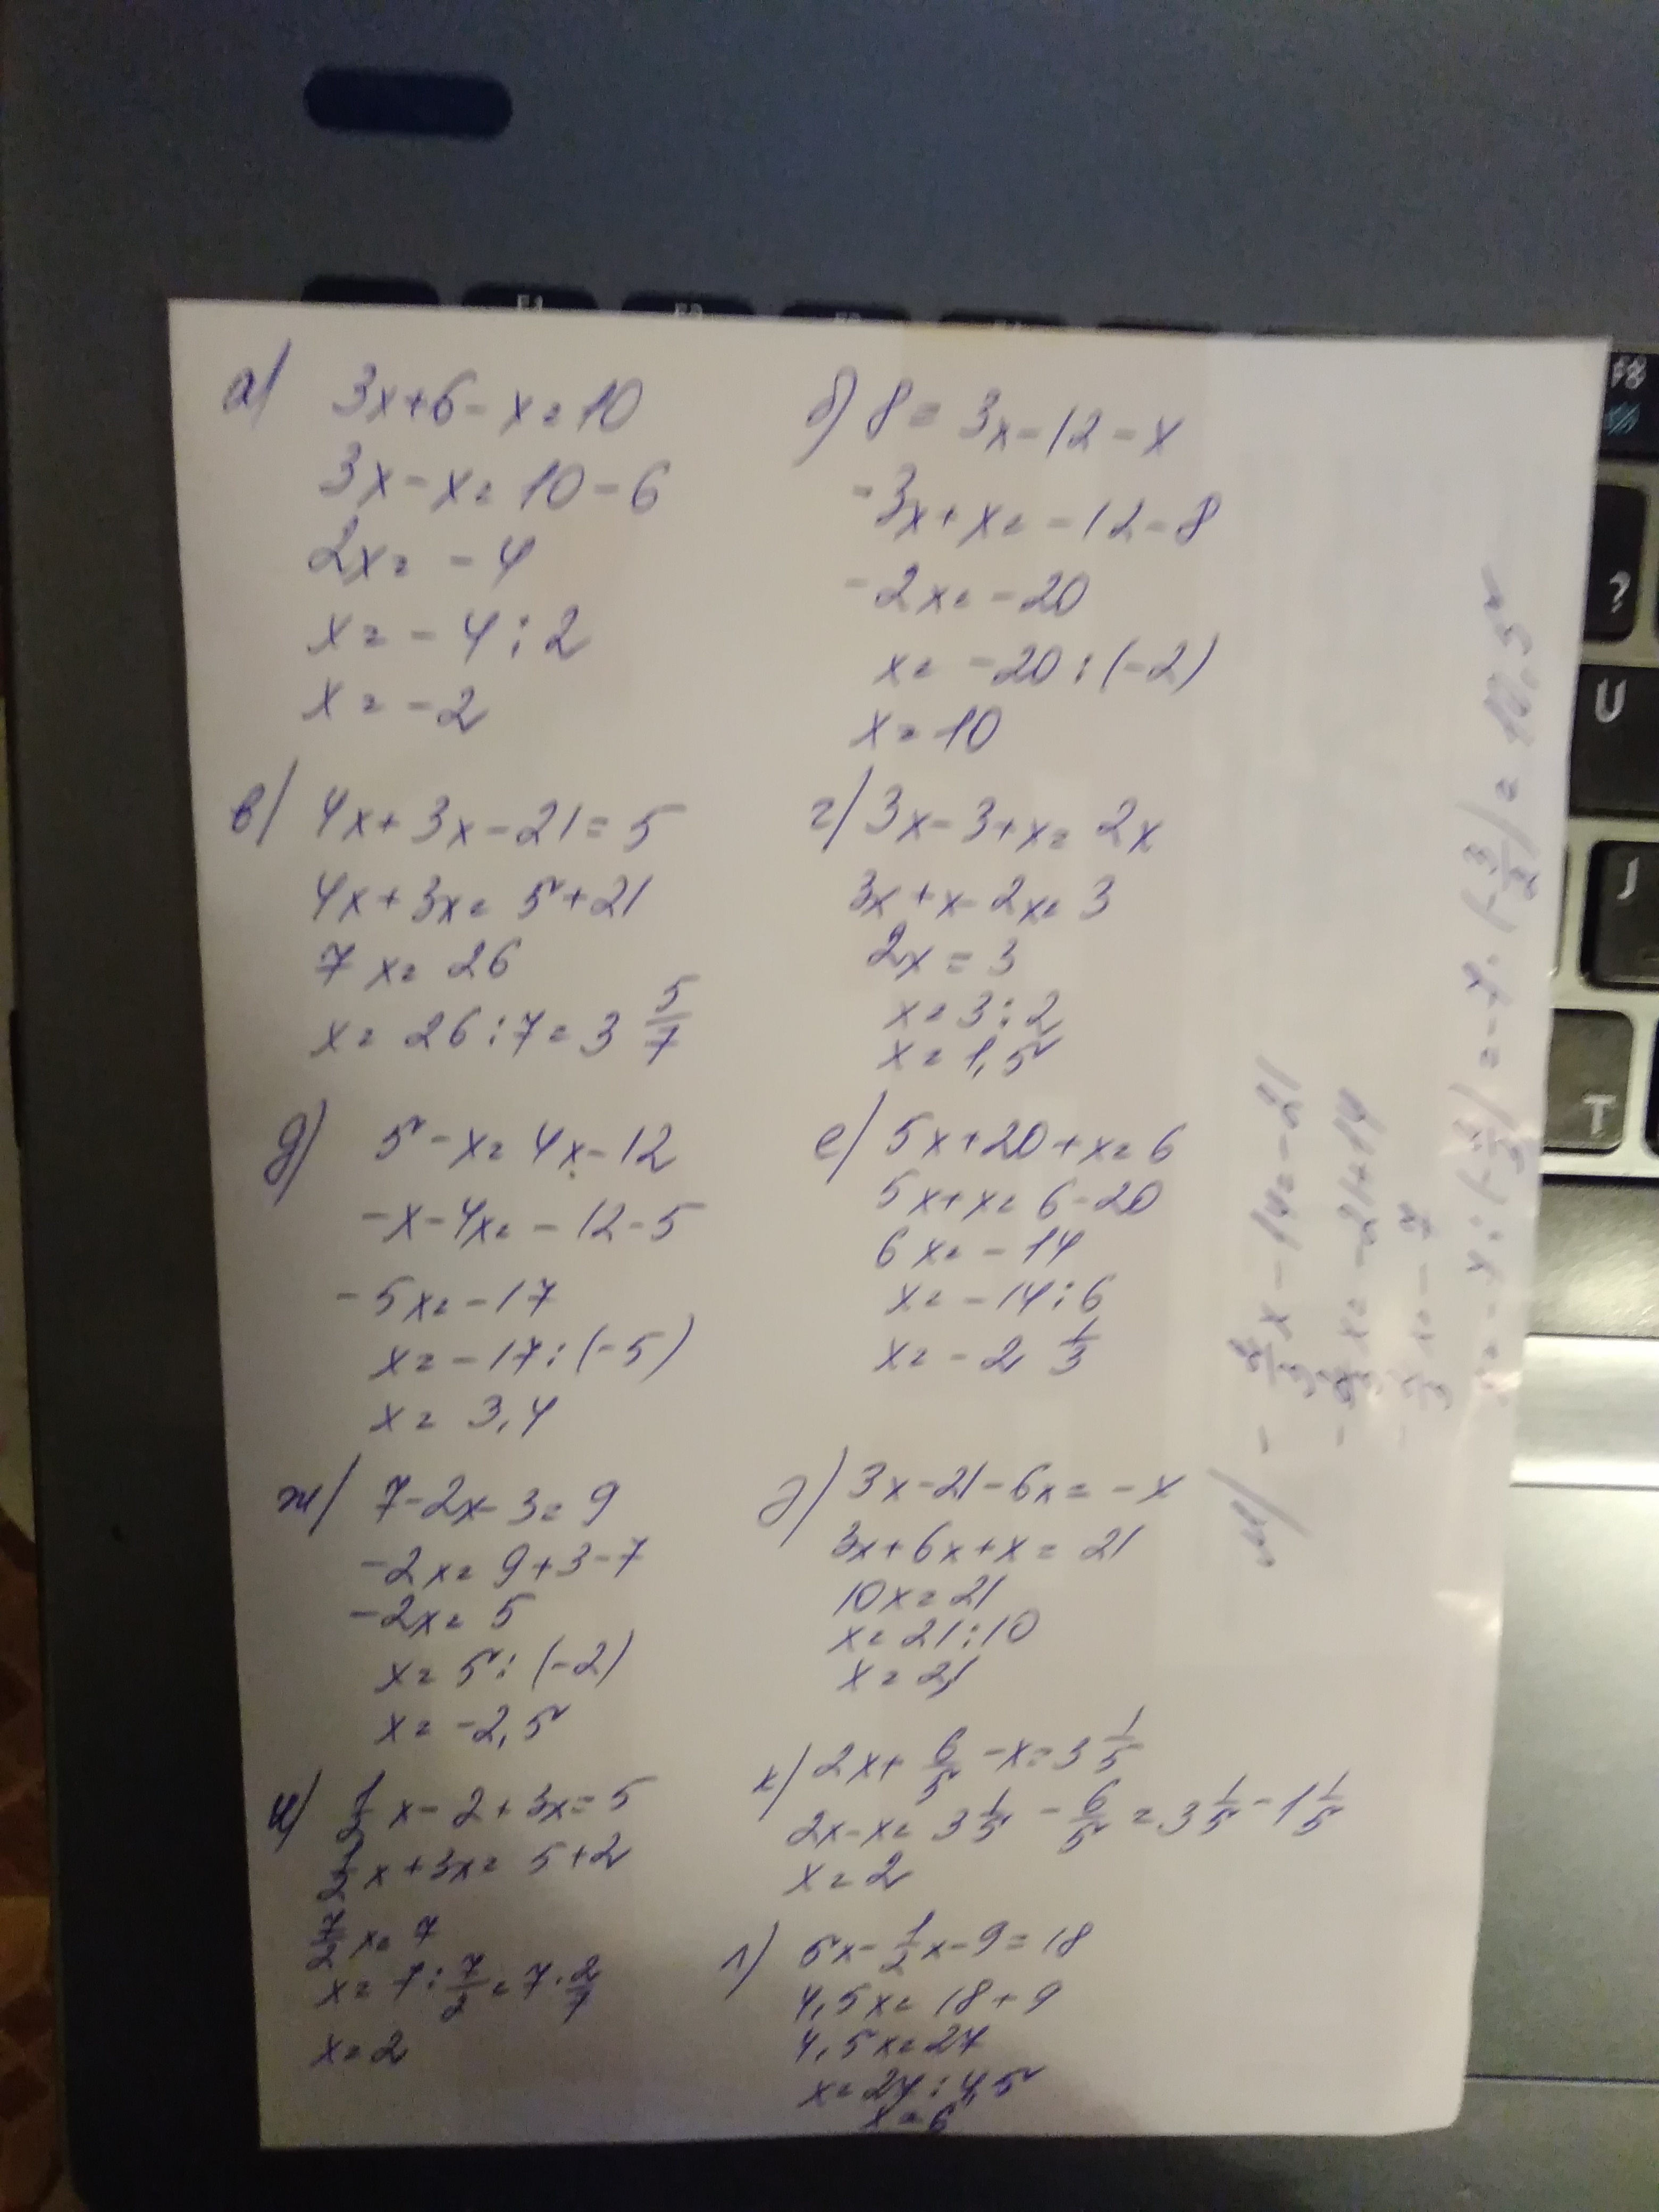 а) 3x+6-x=10
3x-x=10-6
2x=-4
x=-4:2
x=-2
б) 8=3x-12-x
-3x+x=-12-8
-2x=-20
x=-20:(-2)
x=10
в) 4x+3x-21=5
4x+3x=5+21
7x=26
x=26:7=3 5/7
г) 3x-3+x=2x
3x+x-2x=3
2x=3
x=3:2
x=1,5
д) 5-x=4x-12
-x-4x=-12-5
-5x=-17
x=-17:(-5)
x=3,4
е) 5x+20+x=6
5x+x=6-20
6x=-14
x=-14:6
x=-2 1/3
ж) 7-2x-3=9
-2x=9+3-7
-2x=5
x=5:(-2)
x=-2,5
з) 3x-21-6x=-x
3x+6x+x=21
10x=21
x=21:10
x=2,1
и) 1/2x-2+3x=5
1/2x+3x=5+2
7/2x=7
x=7:7/2=7·2/7
x=2
к) 2x+6/5-x=3 1/5
2x-x=3 1/5-6/5=3 1/5-1 1/5
x=2
л) 5x-1/2x-9=18
4,5x=18+9
4,5x=27
x=27:4,5
x=6
м) -2/3x-14=-21
-2/3x=-21+14
-2/3x=-7
x=-7:(-2/3)=-7·(-3/2)=10,5
F1
F2
F8
?
U
J
T